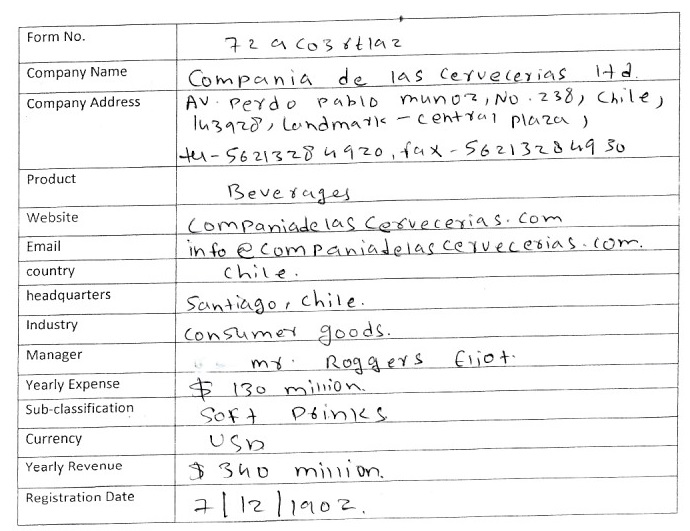 Form No. 72ac03rtlaz
Company Name Compania de las cervecerias ltd.
Company Address AV. perdo pablo munoz, No. 238, Chile,
143928, Landmark - central plaza,
tel - 56213284920, fax - 56213284930
Product Beverages
Website Companiadelas Cervecerias.com
Email info@companiadelascervecerias.com.
country chile.
headquarters Santiago, chile.
Industry consumer goods.
Manager mr. Roggers Eliot.
Yearly Expense $ 130 million.
Sub-classification Soft Drinks
Currency USD
Yearly Revenue $ 340 million.
Registration Date 7/12/1902.